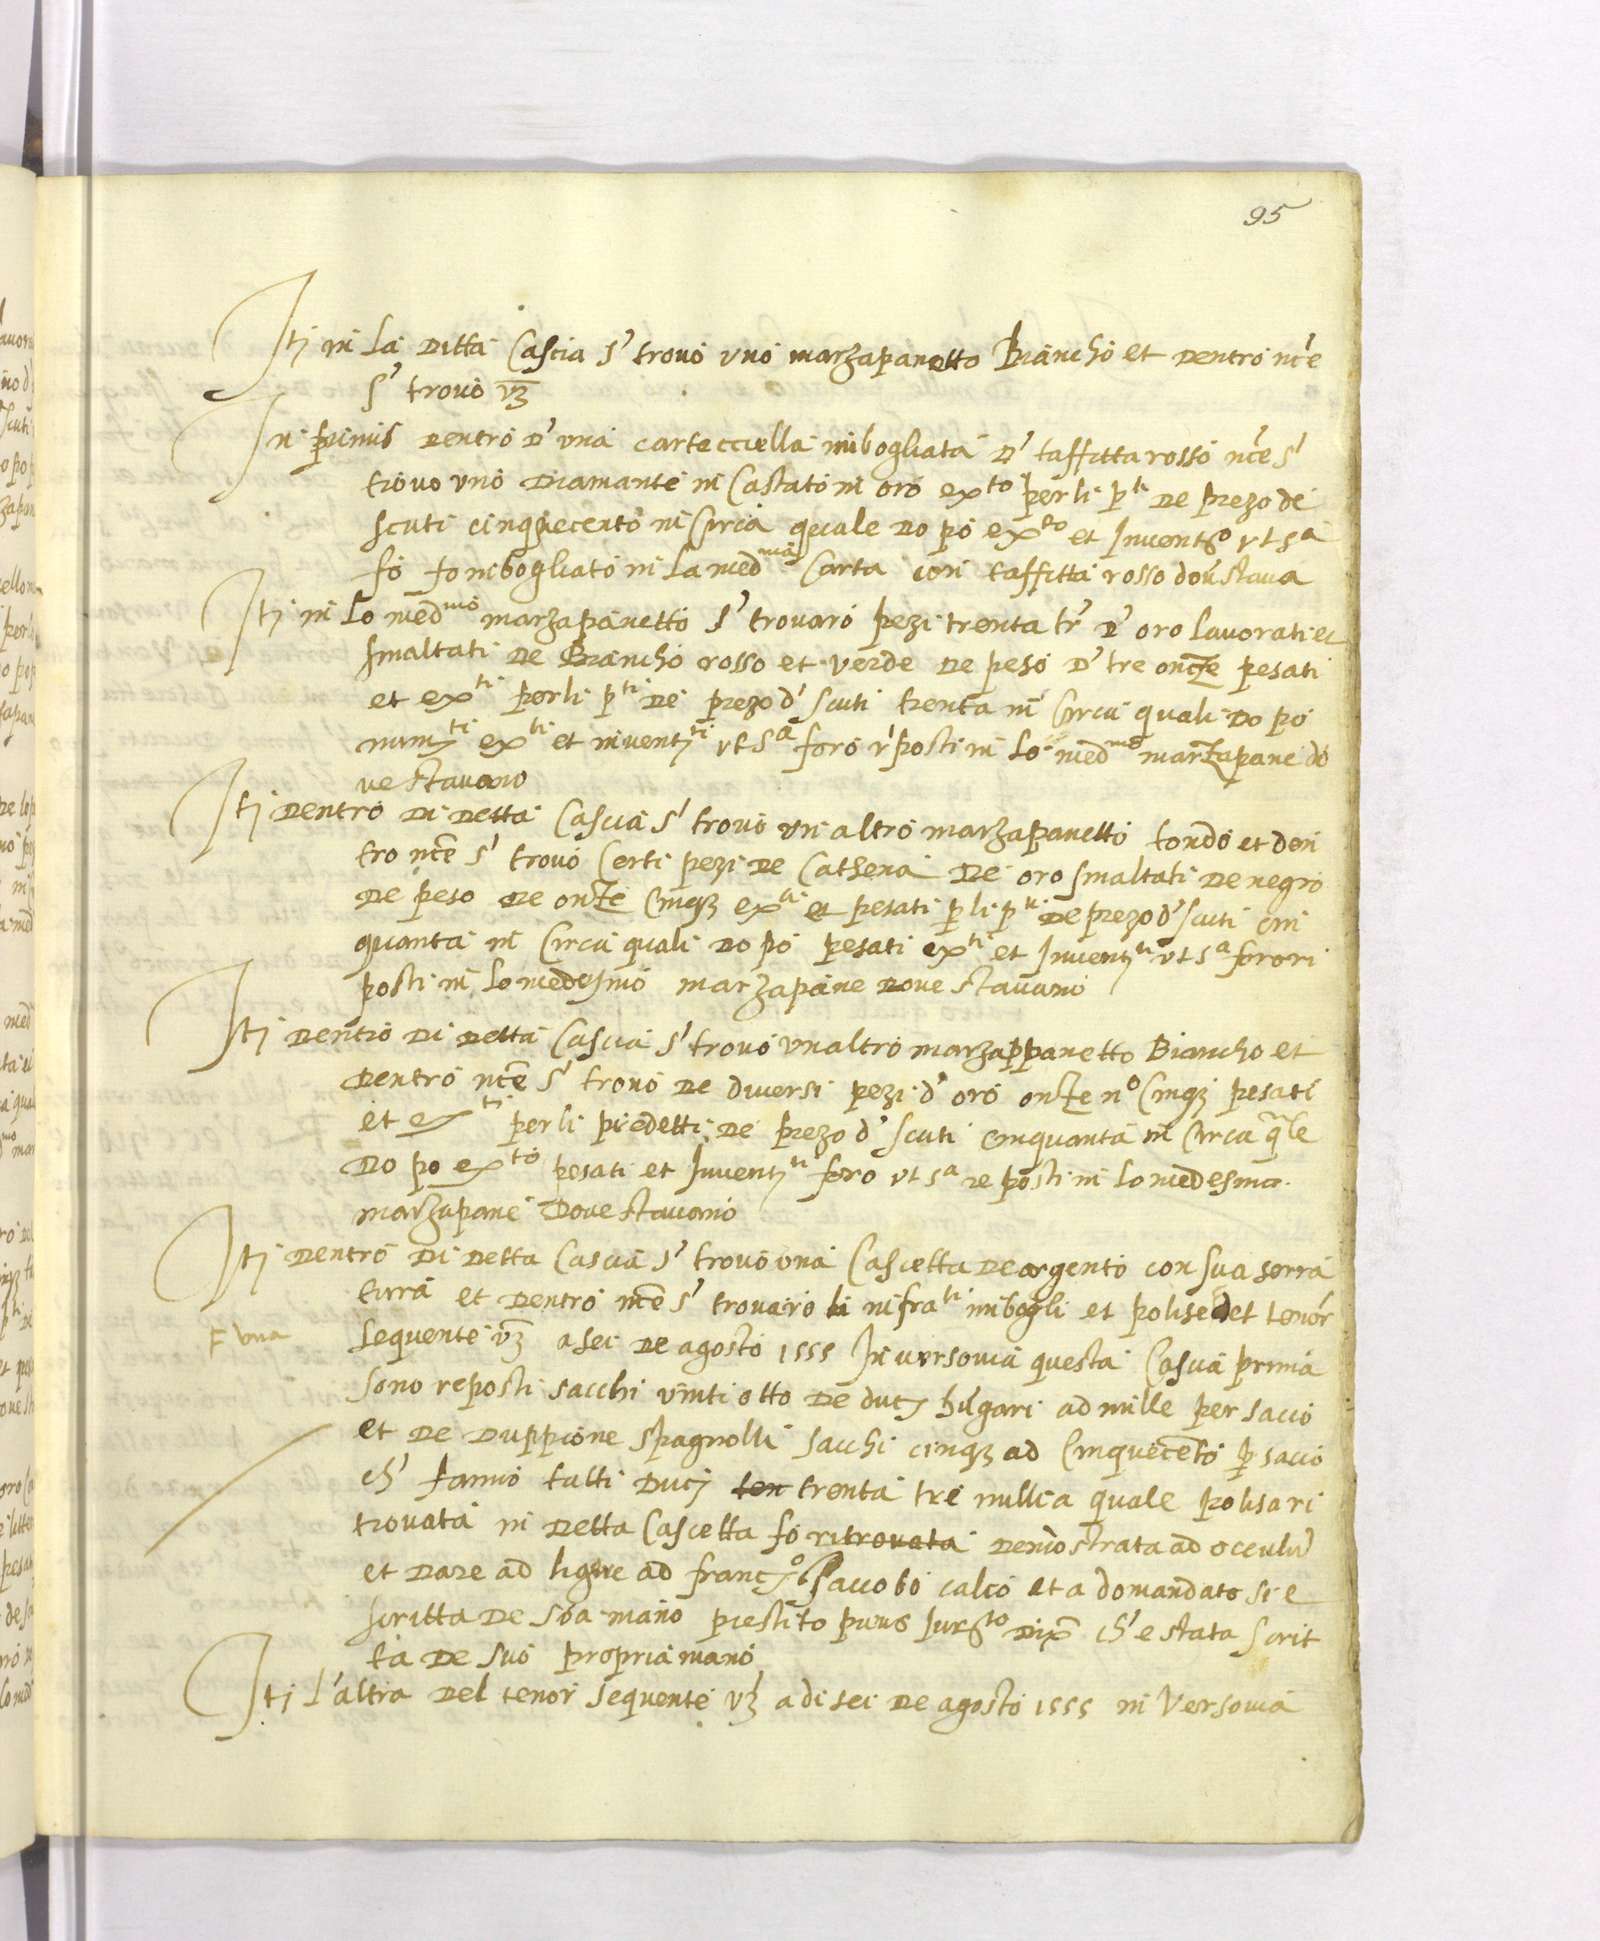 95
Itj in la ditta Cascia s' trovò uno marzapanetto Biancho et dentro nc'e
s' trovò vz
In primis dentro d' una cartecciella inbogliata d' taffitta rosso nce s'
trovo uno diamante in Castato in oro exto per li pti de prezo de
scuti cinquecento in Circa quale do po exto et Inventto ut sa
fo tornbogliato in la medma Carta con taffitta rosso dov' stava
Itj in lo medmo marzapanetto s' trovaro pezi trenta tr' d' oro lavorati et
smaltati de Biancho rosso et verde de peso d' tre onze pesati
et exti per li pti de prezo d' scuti trenta in Circa quali do po
numti exti et inventti ut sa foro r'posti in lo medmo marzapane do
ve stavano
Itj dentro di detta Cascia s' trovò un altro marzapanetto tondo et den
tro nce s' trovò Certi pezi de Cathena de oro smaltati de negro
de peso de onze Cinqz exti et pesati p li pti de prezo d' scuti cin
quanta in Circa quali do po pesati exti et Inventti ut sa foro ri
posti in lo medesmo marzapane dove stavano
Itj dentro di detta Cascia s' trovò unaltro marzappanetto Biancho et
dentro nce s' trovò de diversi pezi d' oro onze no Cinqz pesati
et exti per li predetti de prezo d' scuti cinquanta in Circa qle
do po exto pesati et Inventti foro ut sa re posti in lo medesmo
marzapane dove stavano
Itj dentro di detta Cascia s' trovò una Cascetta de argento con sua serra
tura et dentro nce s' trovaro li infrati inbogli et polise del tenor
F una
sequente vz a sei de agosto 1555 In versovia questa Cascia prima
sono reposti sacchi vinti otto de ducj hungari ad mille per sacco
et de duppione spagnolli sacchi cinqz ad Cinquecento p sacco
ch' fanno tutti ducj ten trenta tre millia quale polisa ri
trovata in detta Cascetta fo ritrovata demostrata ad oculu
et dare ad ligere ad francco Jacobo calcò et a domandato si e
scritta de sua mano prestito prius Jurto dix ch' e stata scrit
ta de suo propria mano
Itj l'altra del tenor sequente vz a di sei de agosto 1555 in Versovia